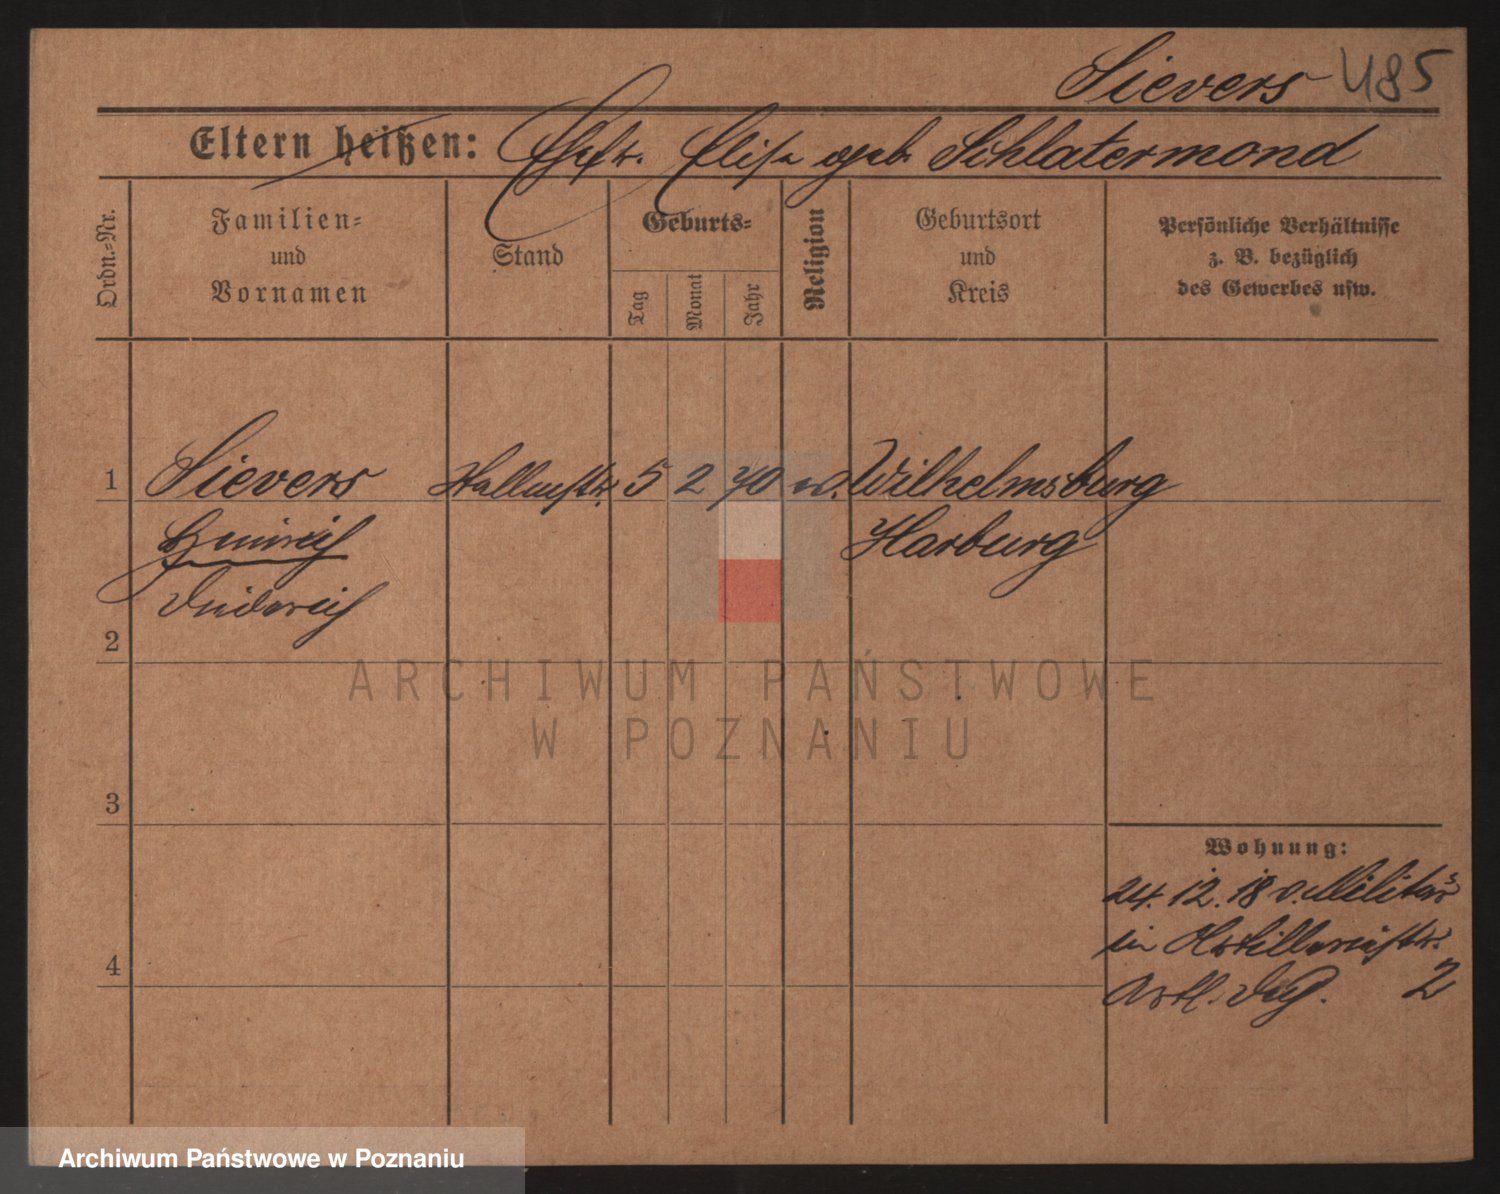 Sievers 485
Eltern heißen: Ehefr. Elise geb. Schlatermond
Ordn.=Nr.
Familien=
und
Vornamen
Stand
Geburts=
Tag
Monat
Jahr
Religion
Geburtsort
und
Kreis
Persönliche Verhältnisse
z. B. bezüglich
des Gewerbes usw.
1 Sievers 5 2 70 Wilhelmsburg
Heinrich Harburg
Diederich
2
ARCHIWUM PAŃSTWOWE
W POZNANIU
3
Wohnung:
24.12.18 v. Militär
in Artilleriestr.
4
Artl. 2
Archiwum Państwowe w Poznaniu